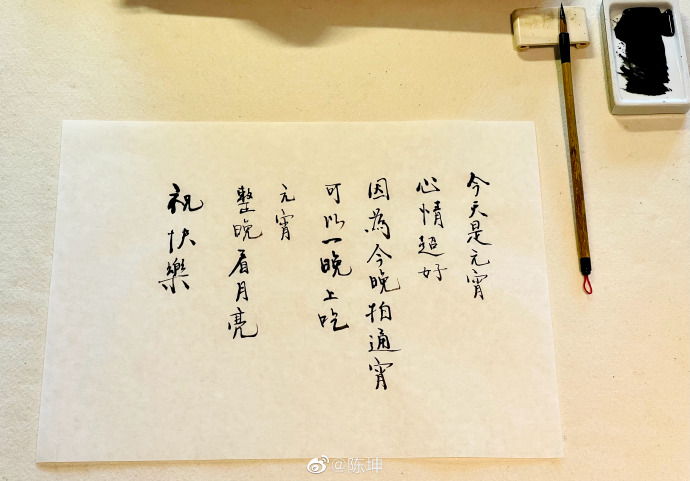 今天是元宵
心情超好
因為今晚拍通宵
可以一晚上吃
元宵
整晚看月亮
祝快樂
@陈坤